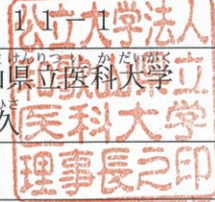 11-1
けんりつい か だいがく
山県立医科大学
ひさ
久
公立大学法人
立
医科大学
理事長之印